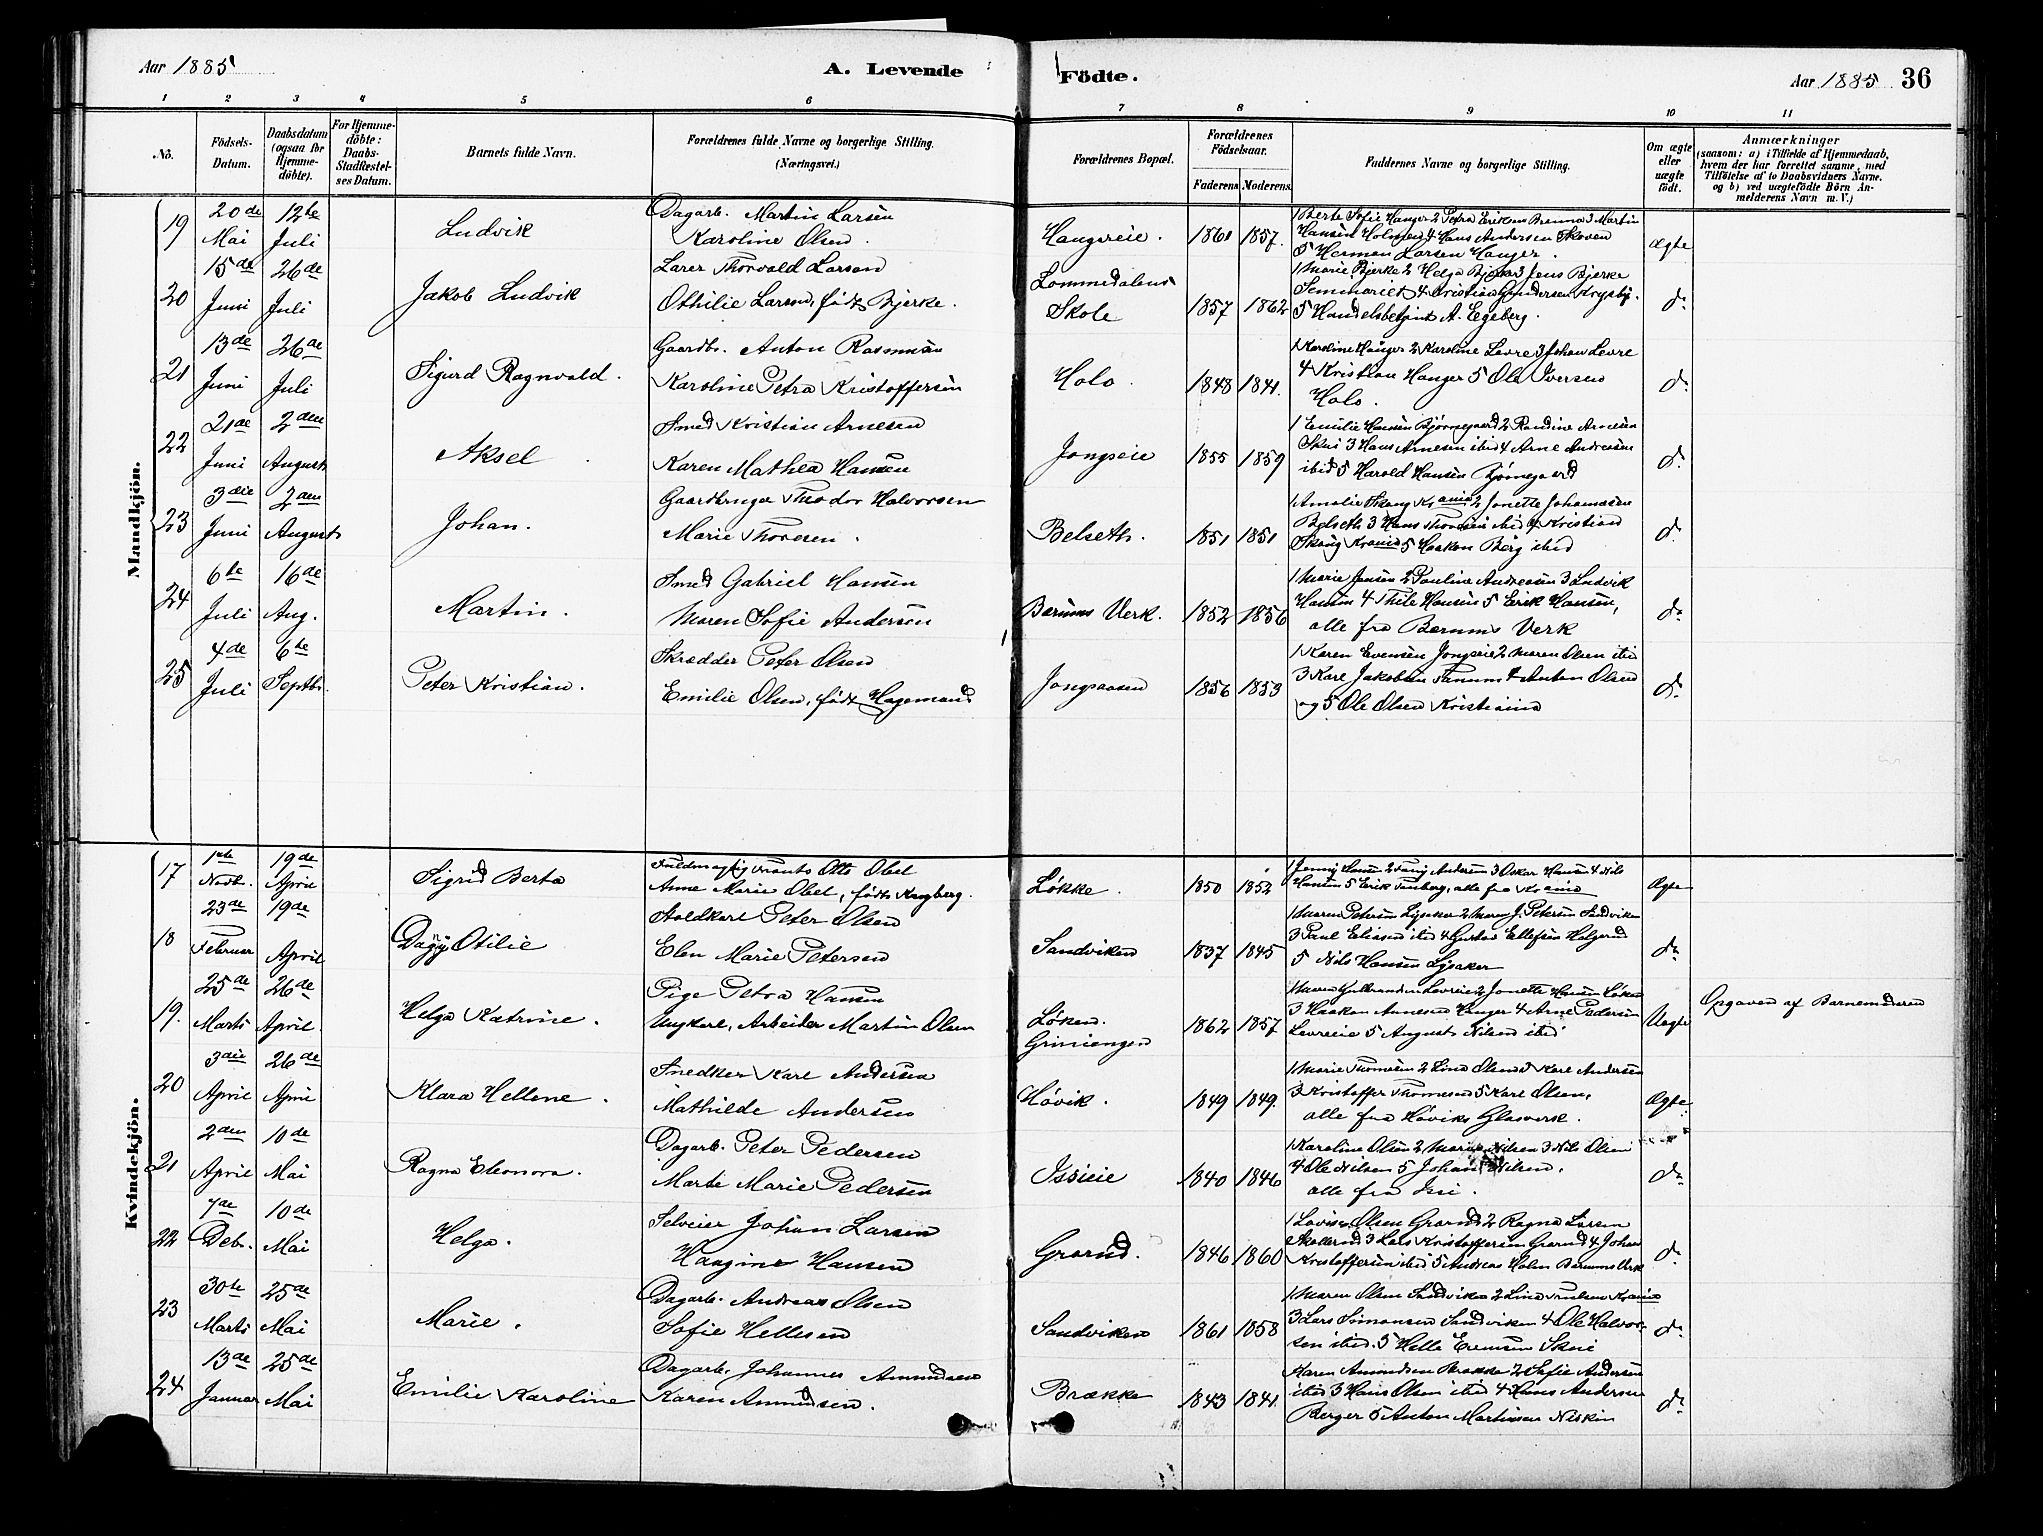 Aar 1885
A. Levende
Födte.
Aar 1885 36
1 2 3 4 5 6 7 8 9 10 11
No.
Födsels-
Datum.
Daabsdatum
(ogsaa för
Hjemme-
döbte).
For Hjemme-
döbte:
Daabs-
Stadfæstel-
ses Datum.
Barnets fulde Navn.
Forældrenes fulde Navne og borgerlige Stilling.
(Næringsvei.)
Forældrenes Bopæl.
Forældrenes
Födselsaar.
Faderens Moderens
Faddernes Navne og borgerlige Stilling.
Om ægte
eller
uægte
födt.
Anmærkninger
(saasom: a) i Tilfælde af Hjemmedaab,
hvem der har forrettet samme, med
Tilföielse af to Daabsvidners Navne,
og b) ved uægtefödte Börn An-
melderens Navn m. V.)
Mandkjön.
19
20de Mai
12te Juli
Ludvik
Dagarb. Martin Larsen
Karoline Olsen
Haugereie.
1861 1857.
1 Berte Sofie Hauger 2 Petra Eriksen Brenna 3 Martin
Hansen Holmen 4 Hans Andersen Skoven
5 Herman Larsen Hauger.
ægte
20
15de Juni
26de Juli
Jakob Ludvik
Lærer Thorvald Larsen
Othilie Larsen, født Bjerke.
Lommedalens
Skole
1857 1862
1 Marie Bjerke 2 Helga Bjerke 3 Jens Bjerke
Seminarist 4 Kristian Gundersen Krysby.
5 Handelsbetjent A. Egeberg.
do
21
13de Juni
26de Juli
Sigurd Ragnvald.
Gaardbr. Anton Rasmusen
Karoline Petra Kristoffersen
Holo.
1848 1841.
1 Karoline Hauger 2 Karoline Levre 3 Johan Levre
4 Kristian Hauger 5 Ole Iversen
Holo.
do
22
21de Juni
2den August
Aksel
Smed Kristian Arnesen
Karen Mathea Hansen
Jongseie
1855 1859
1 Emilie Hansen Bjørnegaard 2 Randine Arnesen
Skui 3 Hans Arnesen ibid 4 Arne Andresen
ibid 5 Harold Hansen Bjørnegaard
do
23
3die Juni
2den August
Johan.
Gaardbruger Theodor Halvorsen
Marie Thoresen.
Belseth.
1851 1851
1 Amalie Skaug Krania 2 Jonette Johannesen
Belseth 3 Hans Thoresen ibid 4 Kristian
Skaug Krania 5 Haakon Berg ibid
do
24
6te Juli
16de Aug.
Martin.
Smed Gabriel Hansen
Maren Sofie Andersen
Bærums Verk.
1852 1856
1 Marie Jensen 2 Pauline Andreasen 3 Ludvik
Hansen 4 Thile Hansen 5 Erik Hansen,
alle fra Bærums Verk
do
25
4de Juli
6te Septbr.
Peter Kristian.
Skredder Peter Olsen
Emilie Olsen, født Hagemand
Jongsaasen
1856 1853
1 Karen Evensen Jongseie 2 Maren Olsen ibid
3 Karl Jakobsen Tanum 4 Anton Olsen
og 5 Ole Olsen Kristiania
do
Kvindekjön.
17
1ste Novb.
19de April
Sigrid Berta
Fuldmægtig Frants Otto Obel
Anna Marie Obel, født Kragberg.
Løkke.
1850 1852
1 Jenny Hansen 2 Fanny Andersen 3 Oskar Hansen 4 Nils
Hansen 5 Erik Tanberg, alle fra Krania
Ægte
18
23de Februar
19de April
Dagny Otilie
Stoldkarl Peter Olsen
Elen Marie Petersen
Sandviken
1837 1845
1 Maren Petersen Lysaker 2 Maren J. Petersen Sandviken
3 Paul Eliasen ibid 4 Gustav Ellefsen Helgerud
5 Nils Hansen Lysaker
do
19.
25de Marts
26de April.
Helga Katrine.
Pige Petra Hansen
Ungkarl, Arbeider Martin Olsen
Løken.
Griniengen
1862 1857
1 Maren Gulbrandsen Levreie 2 Jonette Hansen Løken
3 Haakon Arnesen Hauger 4 Arne Pedersen
Levreie 5 August Nilsen ibid
Uægte
Opgaven af Barnemoderen
20
3die April
26de April
Klara Hellene.
Snedker Karl Andersen
Mathilde Andersen
Høvik.
1849 1849.
1 Marie Thomesen 2 Lina Olsen Karl Andersen
3 Kristoffer Thomesen 5 Karl Olsen,
alle fra Høviks Glasverk.
Ægte
21
2den April
10de Mai
Ragna Eleonora.
Dagarb. Peter Pedersen
Marte Marie Pedersen
Issieie
1840 1846
1 Karoline Olsen 2 Marie Nilsen 3 Nils Olsen
4 Ole Nilsen 5 Johan Nilsen.
alle fra Isi.
do
22
7de Deb.
10de Mai
Helga.
Selveier Johan Larsen
Haagine Hansen
Grorud.
1846 1860
1 Lovise Olsen Grorud 2 Ragna Larsen
Skollerud 3 Lars Kristoffersen Grorud 4 Johan
Kristoffersen ibid 5 Andreas Holm Bærums Verk
do
23
30te Marts
25de Mai
Marie.
Dagarb. Andreas Olsen
Sofie Hellesen
Sandviken
1861 1858
1 Maren Olsen Sandviken 2 Lina Krania
3 Lars Simonsen Sandviken 4 Ole Halvor-
sen ibid. 5 Helle Evensen Skui
do
24
13de Januar
25de Mai
Emilie Karoline
Dagarb. Johannes Amundsen
Karen Amundsen.
Brække
1843 1841.
Karen Amundsen Brække 2 Sofie Andersen
ibid 3 Hans Olsen ibid 4 Hans Andersen
Berger 5 Anton Martinsen
do